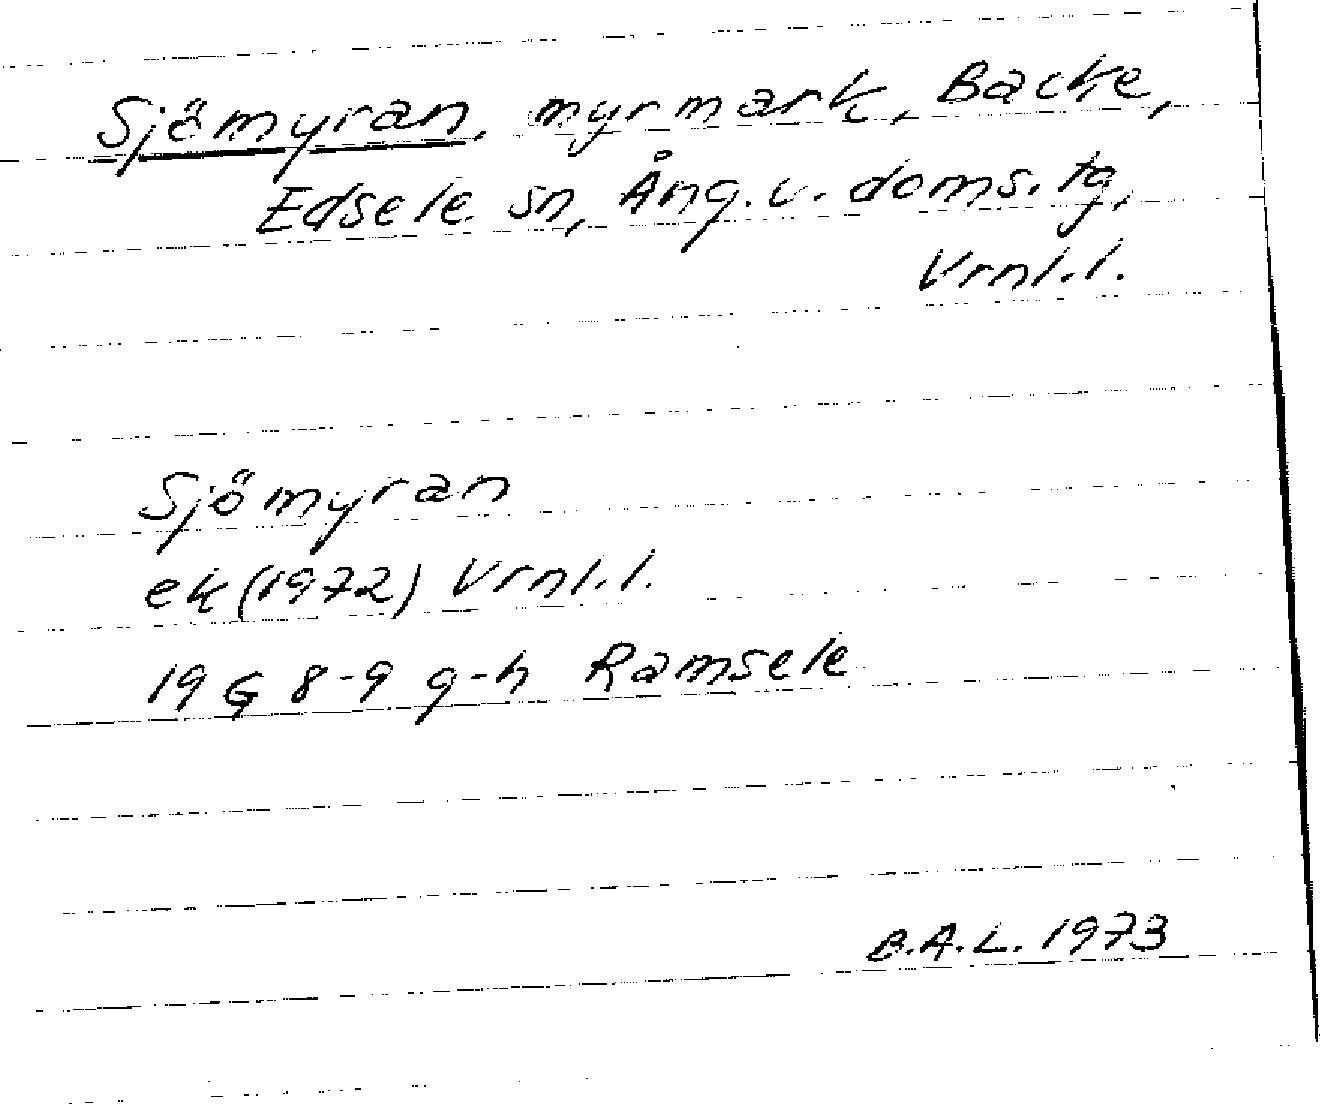 Sjömyran, myrmark, Backe,
Edsele sn, Ång. v. doms. tg,
Vrnl.l.
Sjömyran
ek (1972) Vrnl.l.
19 G 8-9 g-h Ramsele
B.A.L. 1973